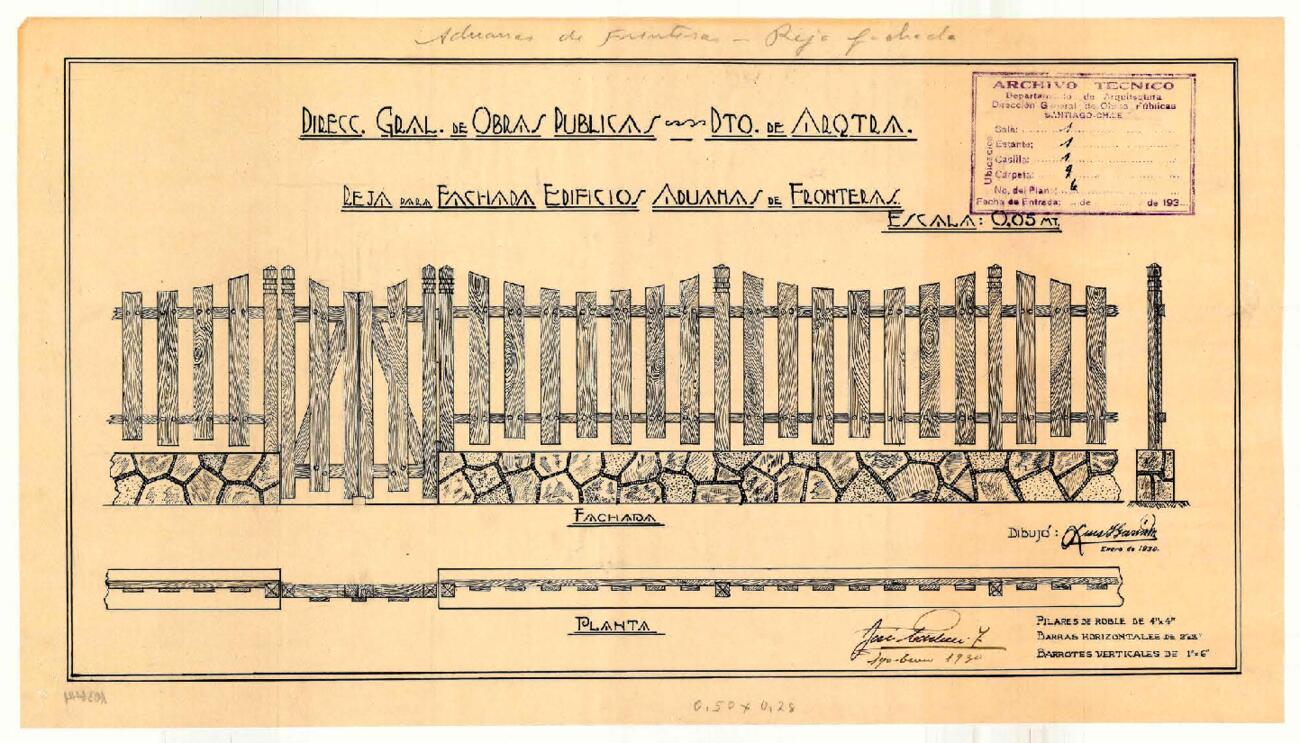 Aduanas de Fronteras - Reja fachada
DIRECC. GRAL. DE OBRAS PUBLICAS DTO. DE ARQTRA.
REJA PARA FACHADA EDIFICIOS ADUANAS DE FRONTERAS.
ESCALA: 0,05 MT.
ARCHIVO TECNICO
Departamento de Arquitectura
Dirección General de Obras Públicas
SANTIAGO-CHILE
Ubicación
Sala: 1
Estante: 1
Casilla: 1
Carpeta: 9
No. del Plano: 6
Fecha de Entrada: de de 193
FACHADA
Dibujó: Luis
Enero de 1930.
PLANTA
José
Enero 1930
PILARES DE ROBLE DE 4"x4"
BARRAS HORIZONTALES DE 2"x3"
BARROTES VERTICALES DE 1"x6"
0,50 x 0,28